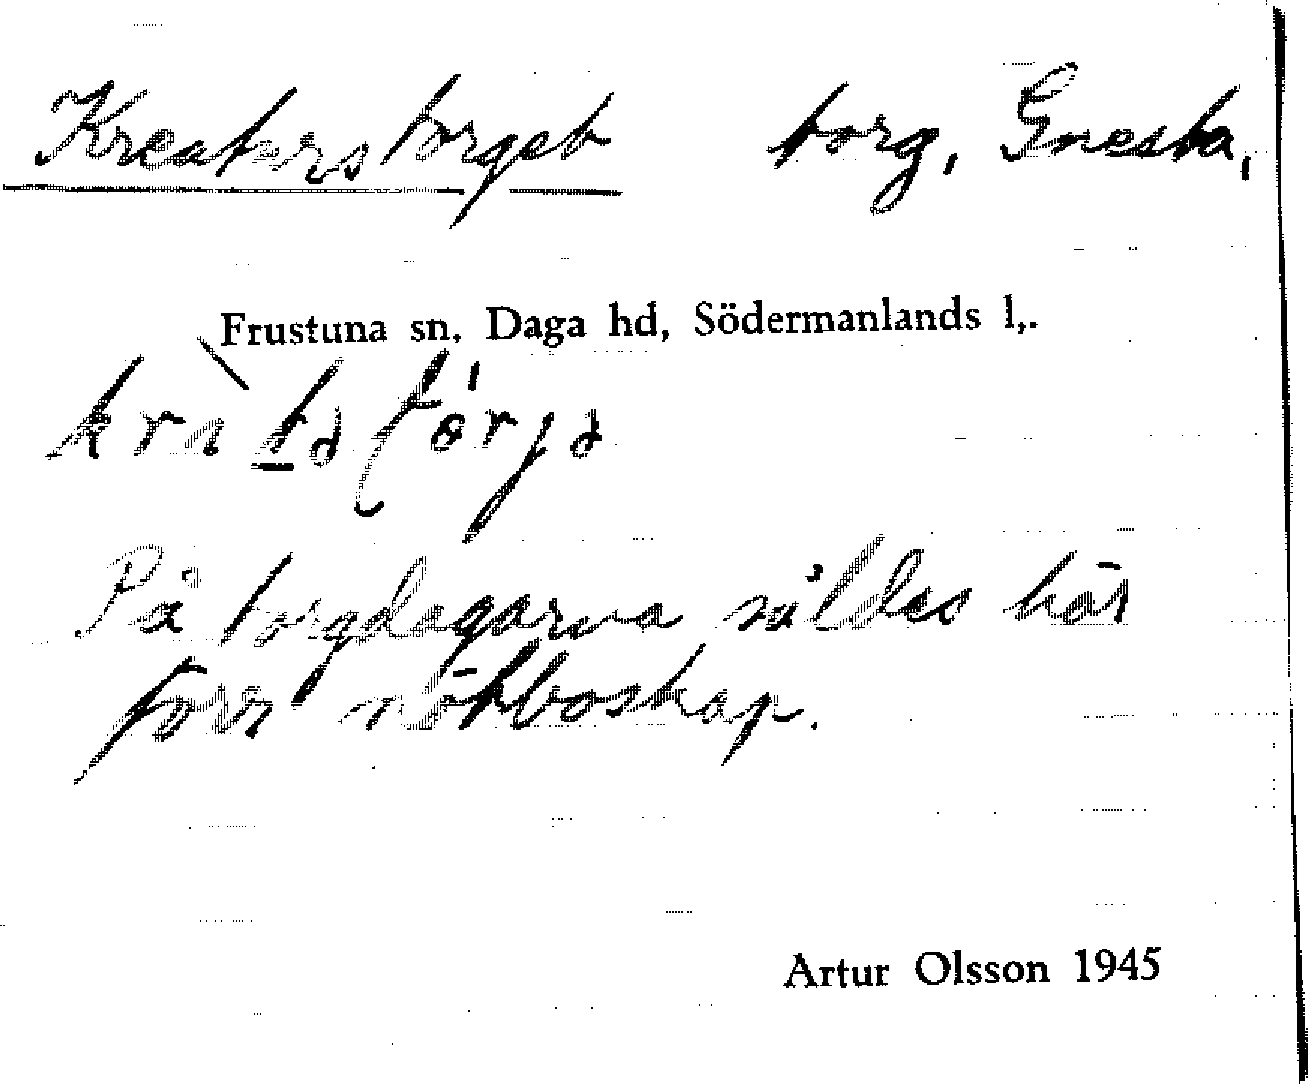 Kreaturstorget torg, Gnesta,
Frustuna sn, Daga hd, Södermanlands l,.
På torgdagarna såldes här
förr nötboskap.
Artur Olsson 1945